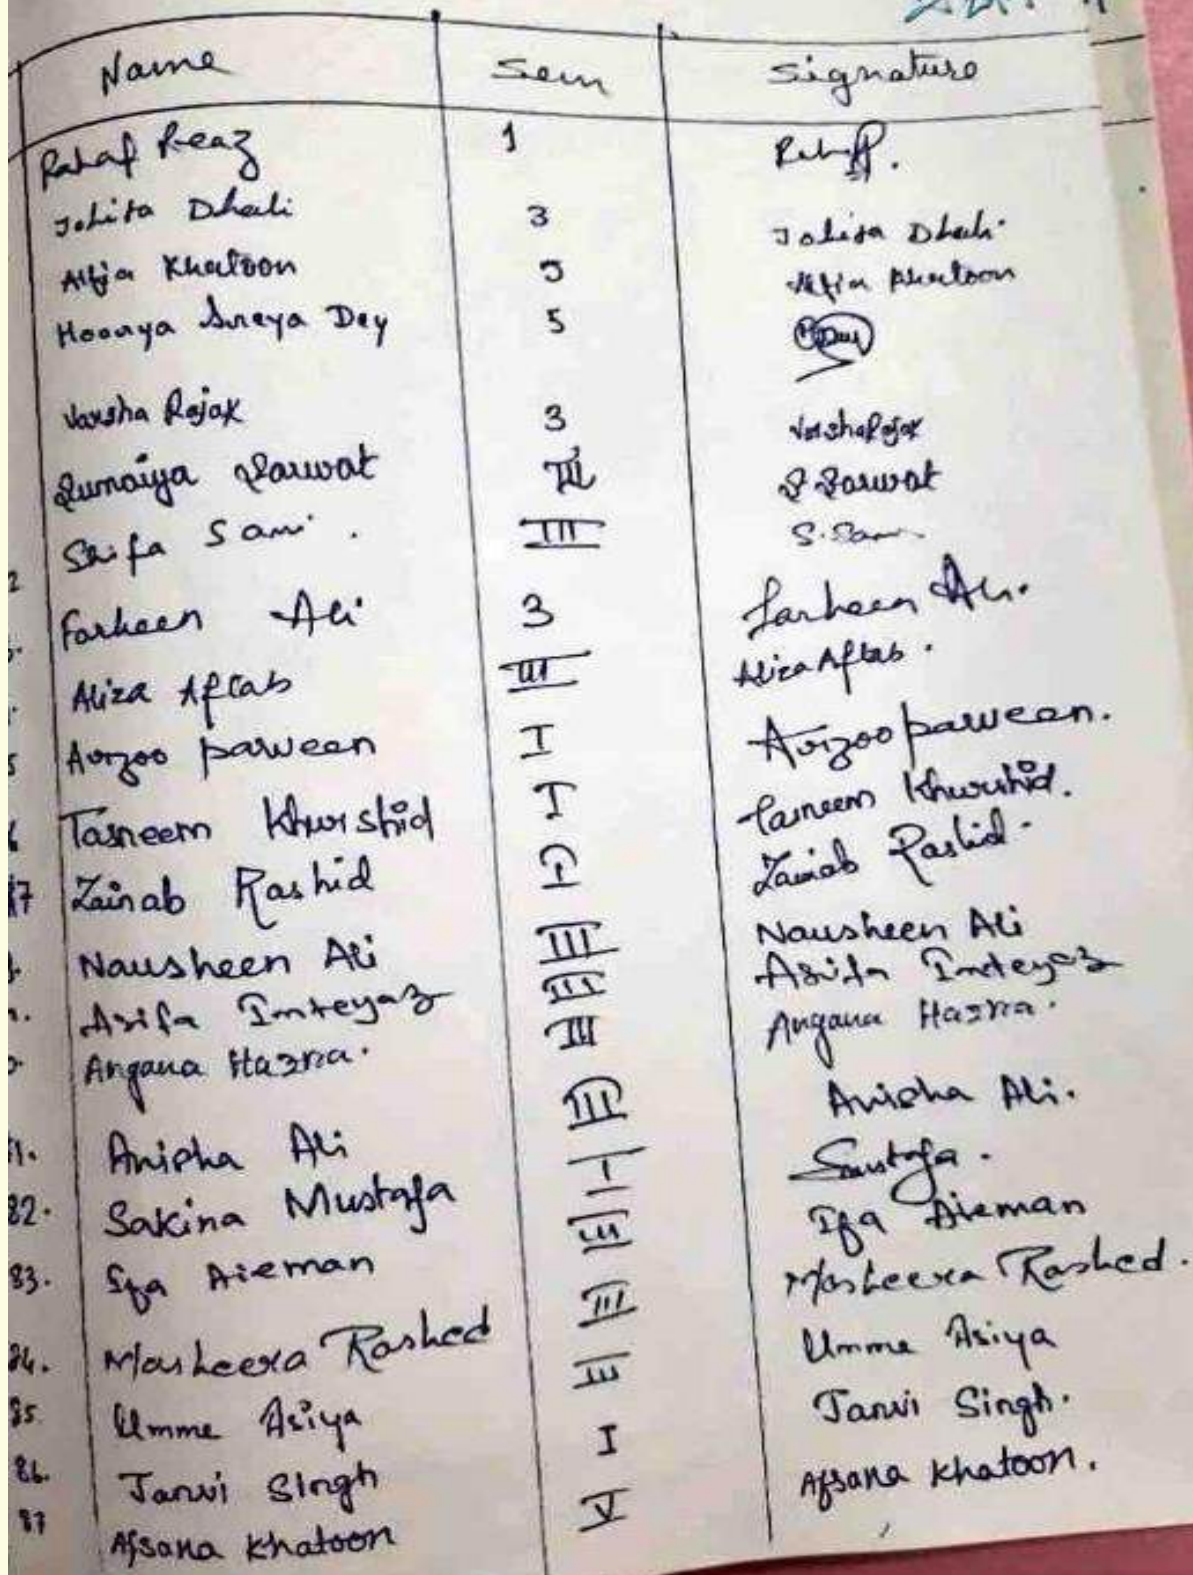 Name Sem Signature
Rahaf Reaz 1
Johita Dhali 3 Johita Dhali
Alfia Khatoon 3 Alfia Khatoon
Sreya Dey 5
Varsha Rajak 3 Varsha Rajak
Sumaiya Sarwat III S Sarwat
Shifa Sami. III S. Sami
Farheen Ali 3 Farheen Ali.
Aliza Aftab III Aliza Aftab.
Arzoo parween I Arzoo parween.
Tasneem Khurshid I Tasneem Khurshid.
87 Zainab Rashid I Zainab Rashid.
Nausheen Ali III Nausheen Ali
Asifa Imteyaz III Asifa Imteyaz
Angana Hazra. III Angana Hazra.
Anisha Ali III Anisha Ali.
82. Sakina Mustafa I
83. Ifa Aieman III Ifa Aieman
84. Masheera Rashed III Masheera Rashed.
85. Umme Asiya III Umme Asiya
86. Janvi Singh I Janvi Singh.
87 Afsana Khatoon V Afsana Khatoon.